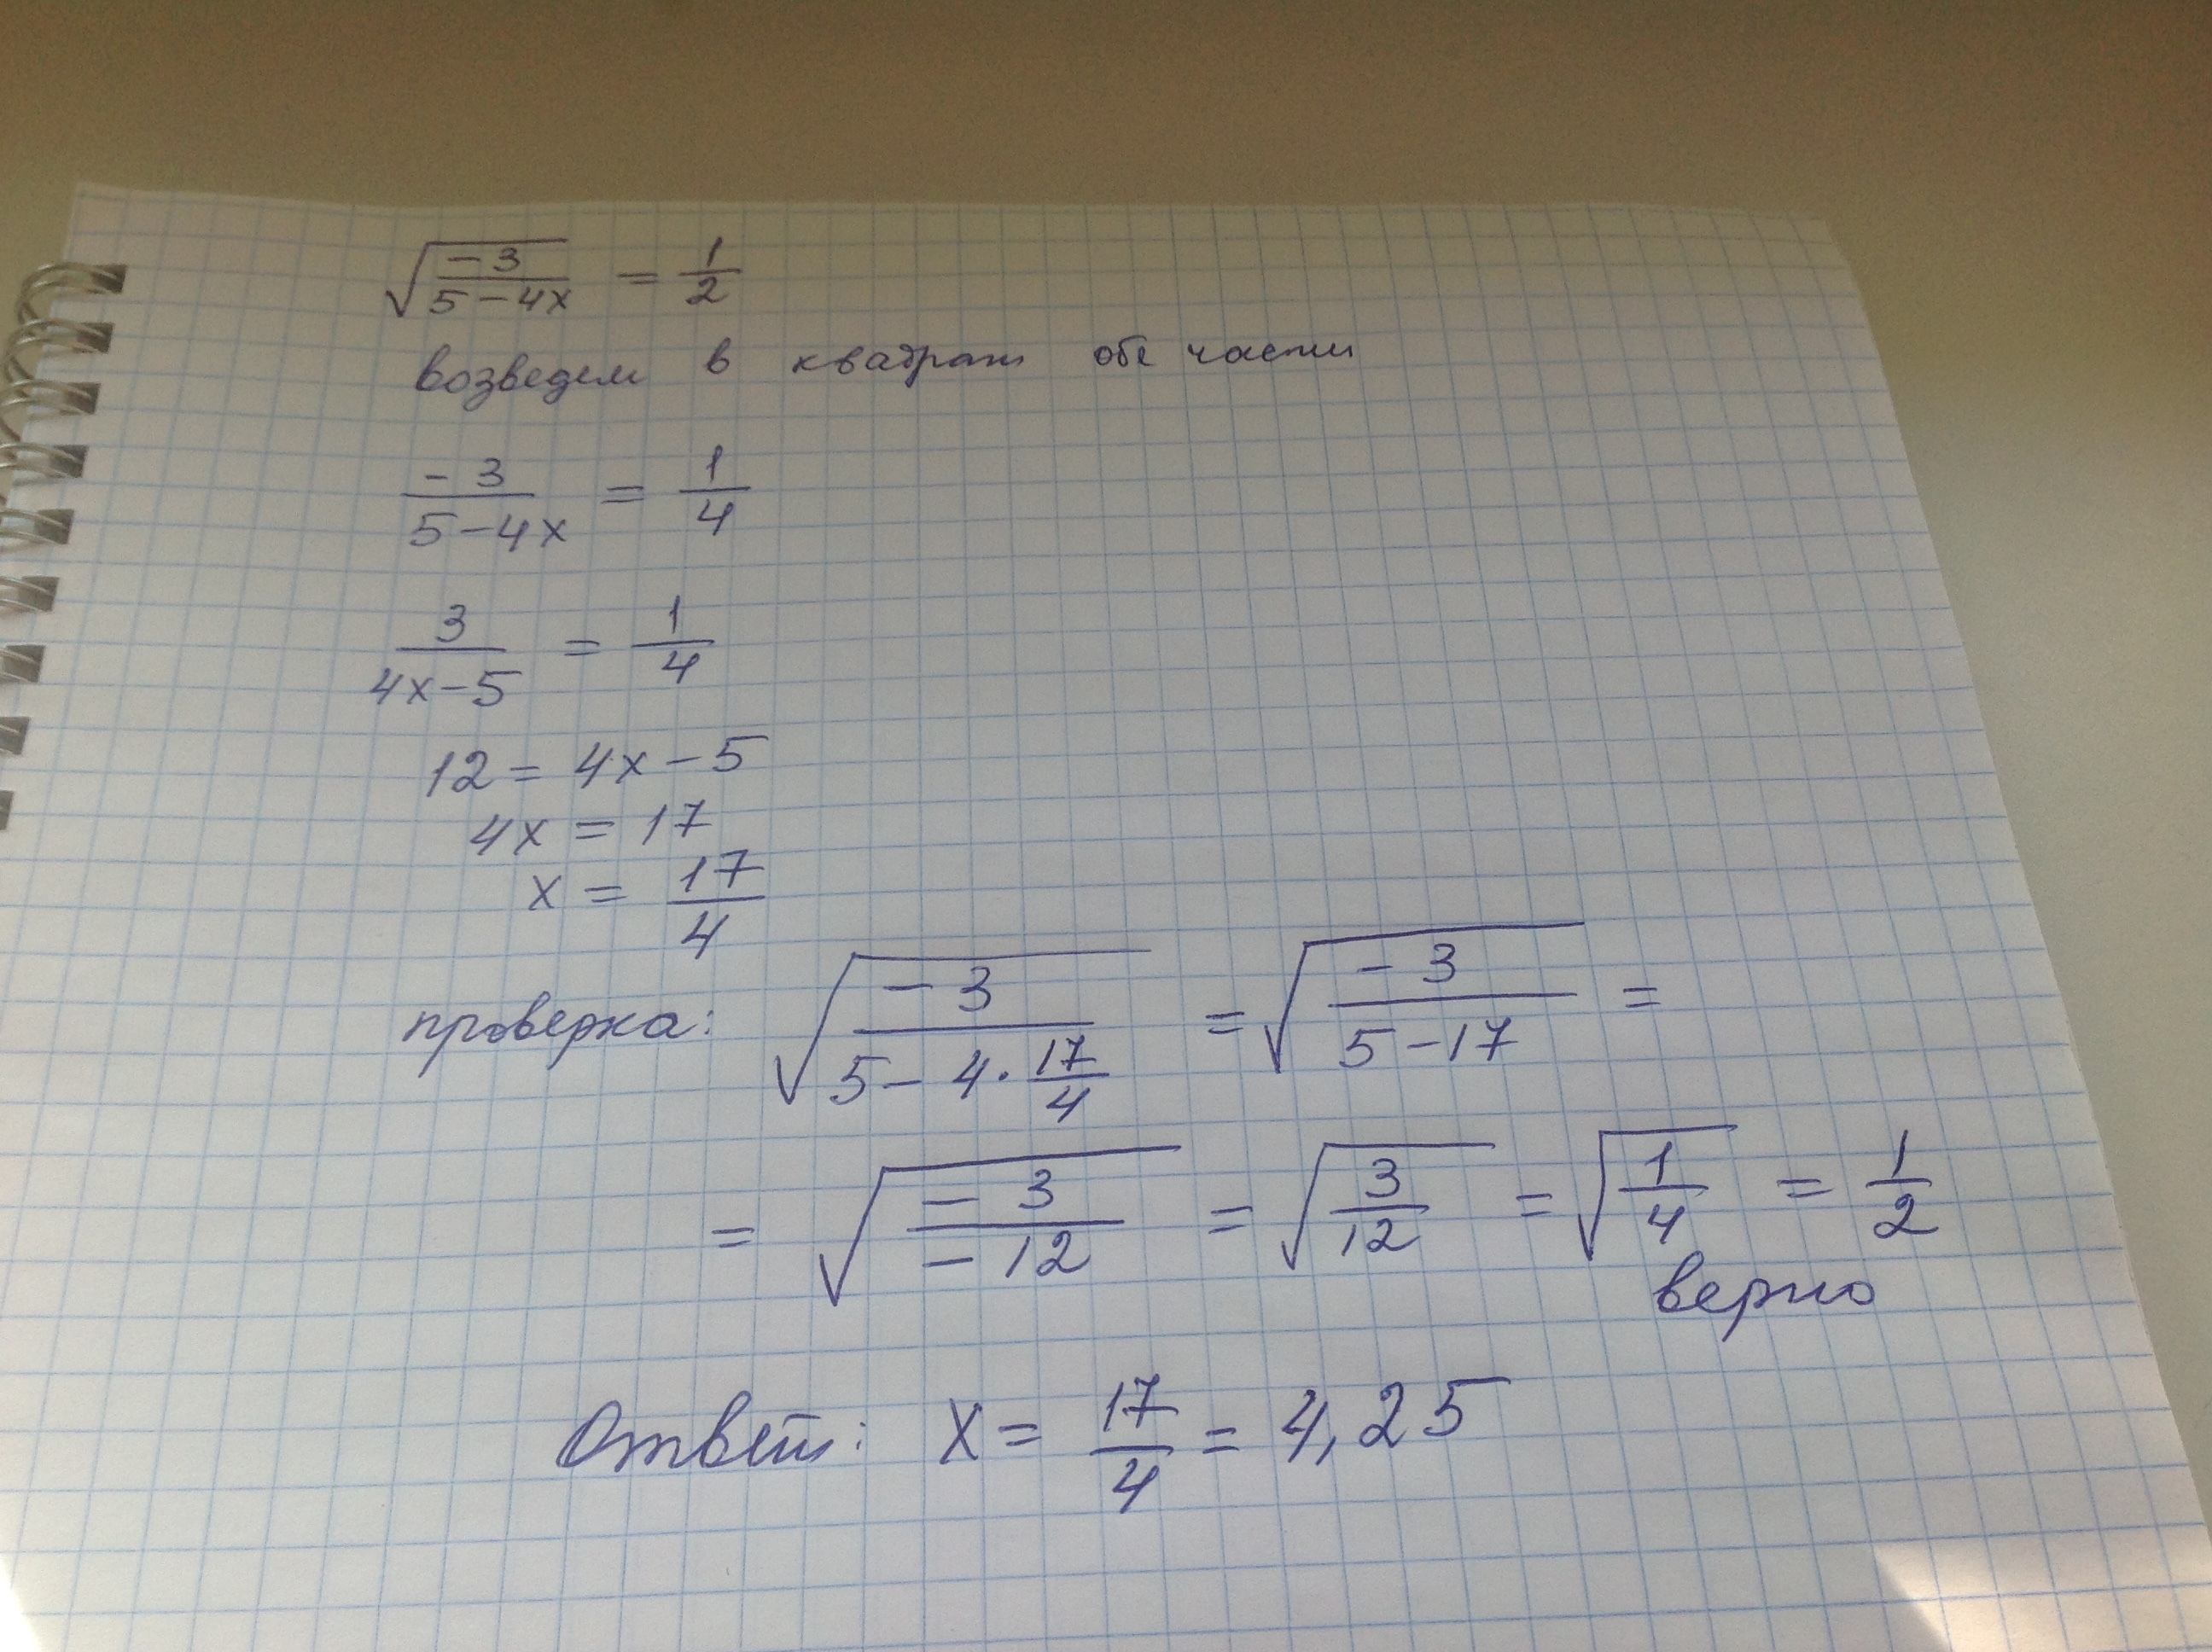 √(-3/(5-4x)) = 1/2
возведем в квадрат обе части
-3/(5-4x) = 1/4
3/(4x-5) = 1/4
12 = 4x-5
4x = 17
x = 17/4
проверка: √(-3/(5-4·17/4)) = √(-3/(5-17)) =
= √(-3/-12) = √(3/12) = √(1/4) = 1/2
верно
Ответ: x = 17/4 = 4,25